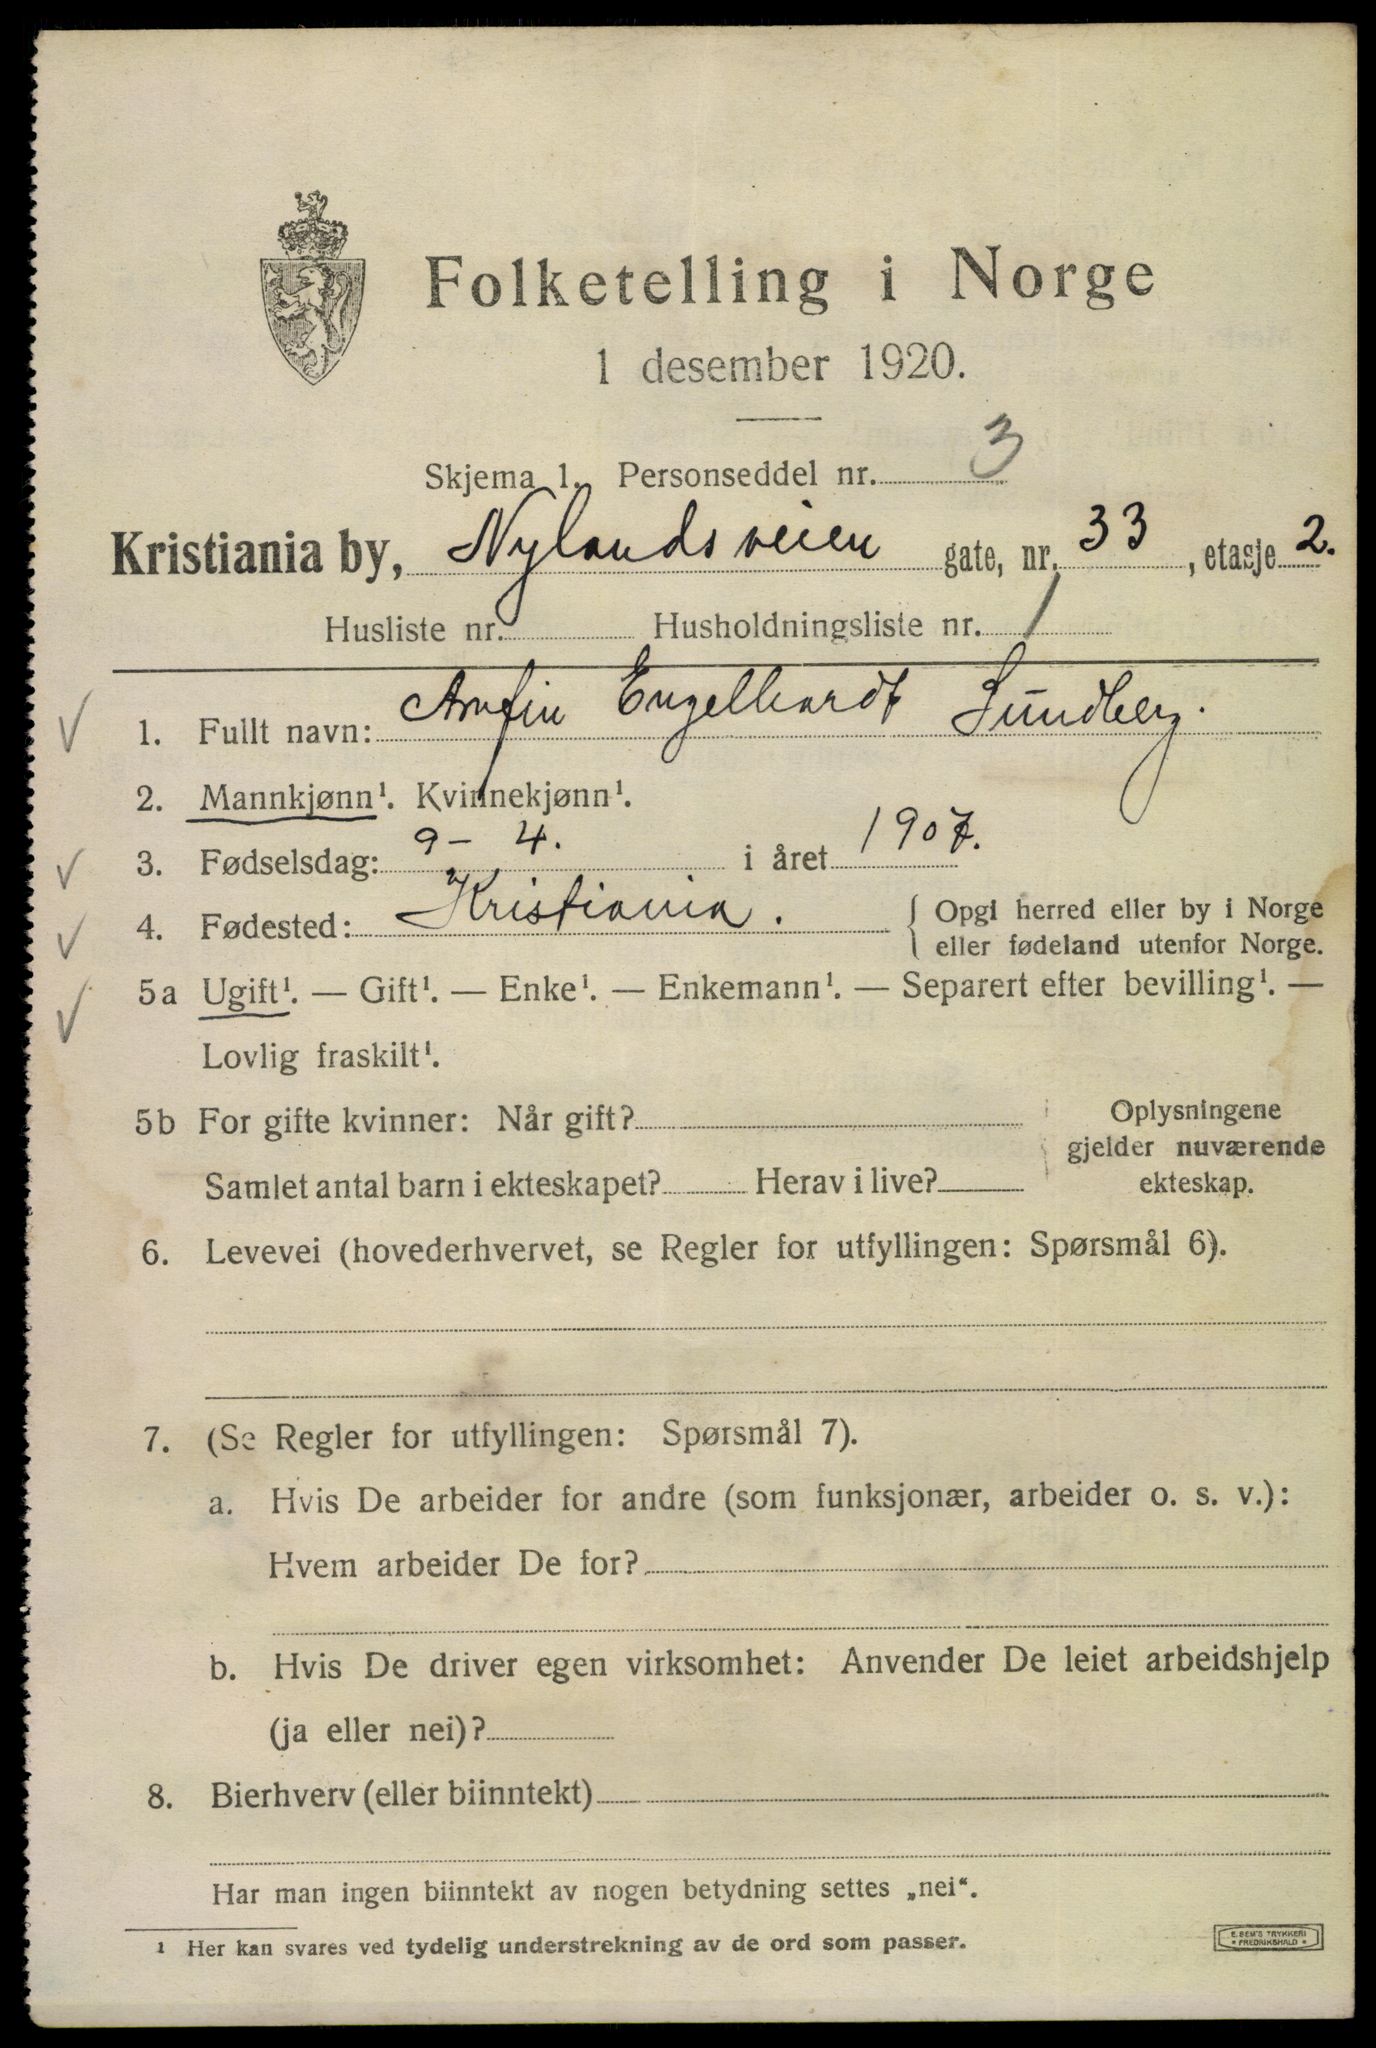 Folketelling i Norge
1 desember 1920.
Skjema 1. Personseddel nr. 3
Kristiania by, Nylandsveien gate, nr. 33, etasje 2.
Husliste nr. Husholdningsliste nr. 1
1. Fullt navn: Arnfin Engelhardt Sundberg.
2. Mannkjønn¹. Kvinnekjønn¹.
3. Fødselsdag: 9 - 4. i året 1907.
4. Fødested: Kristiania. { Opgi herred eller by i Norge
eller fødeland utenfor Norge.
5a Ugift¹. — Gift¹. — Enke¹. — Enkemann¹. — Separert efter bevilling¹. —
Lovlig fraskilt¹.
5b For gifte kvinner: Når gift? Oplysningene
gjelder nuværende
Samlet antal barn i ekteskapet? Herav i live? ekteskap.
6. Levevei (hovederhvervet, se Regler for utfyllingen: Spørsmål 6).
7. (Se Regler for utfyllingen: Spørsmål 7).
a. Hvis De arbeider for andre (som funksjonær, arbeider o. s. v.):
Hvem arbeider De for?
b. Hvis De driver egen virksomhet: Anvender De leiet arbeidshjelp
(ja eller nei)?
8. Bierhverv (eller biinntekt)
Har man ingen biinntekt av nogen betydning settes „nei“.
¹ Her kan svares ved tydelig understrekning av de ord som passer.
E. SEM'S TRYKKERI
* FREDRIKSHALD *